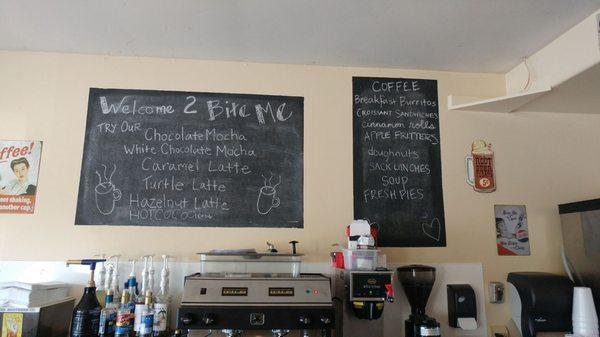 Welcome 2 Bite Me
TRY OUR
Chocolate Mocha
White Chocolate Mocha
Caramel Latte
Turtle Latte
Hazelnut Latte
HOT COCOA
COFFEE
Breakfast Burritos
CROISSANT SANDWICHES
cinnamon rolls
APPLE FRITTERS
doughnuts
SACK LUNCHES
SOUP
FRESH PIES
ffee!
t shaking.
nother cup.